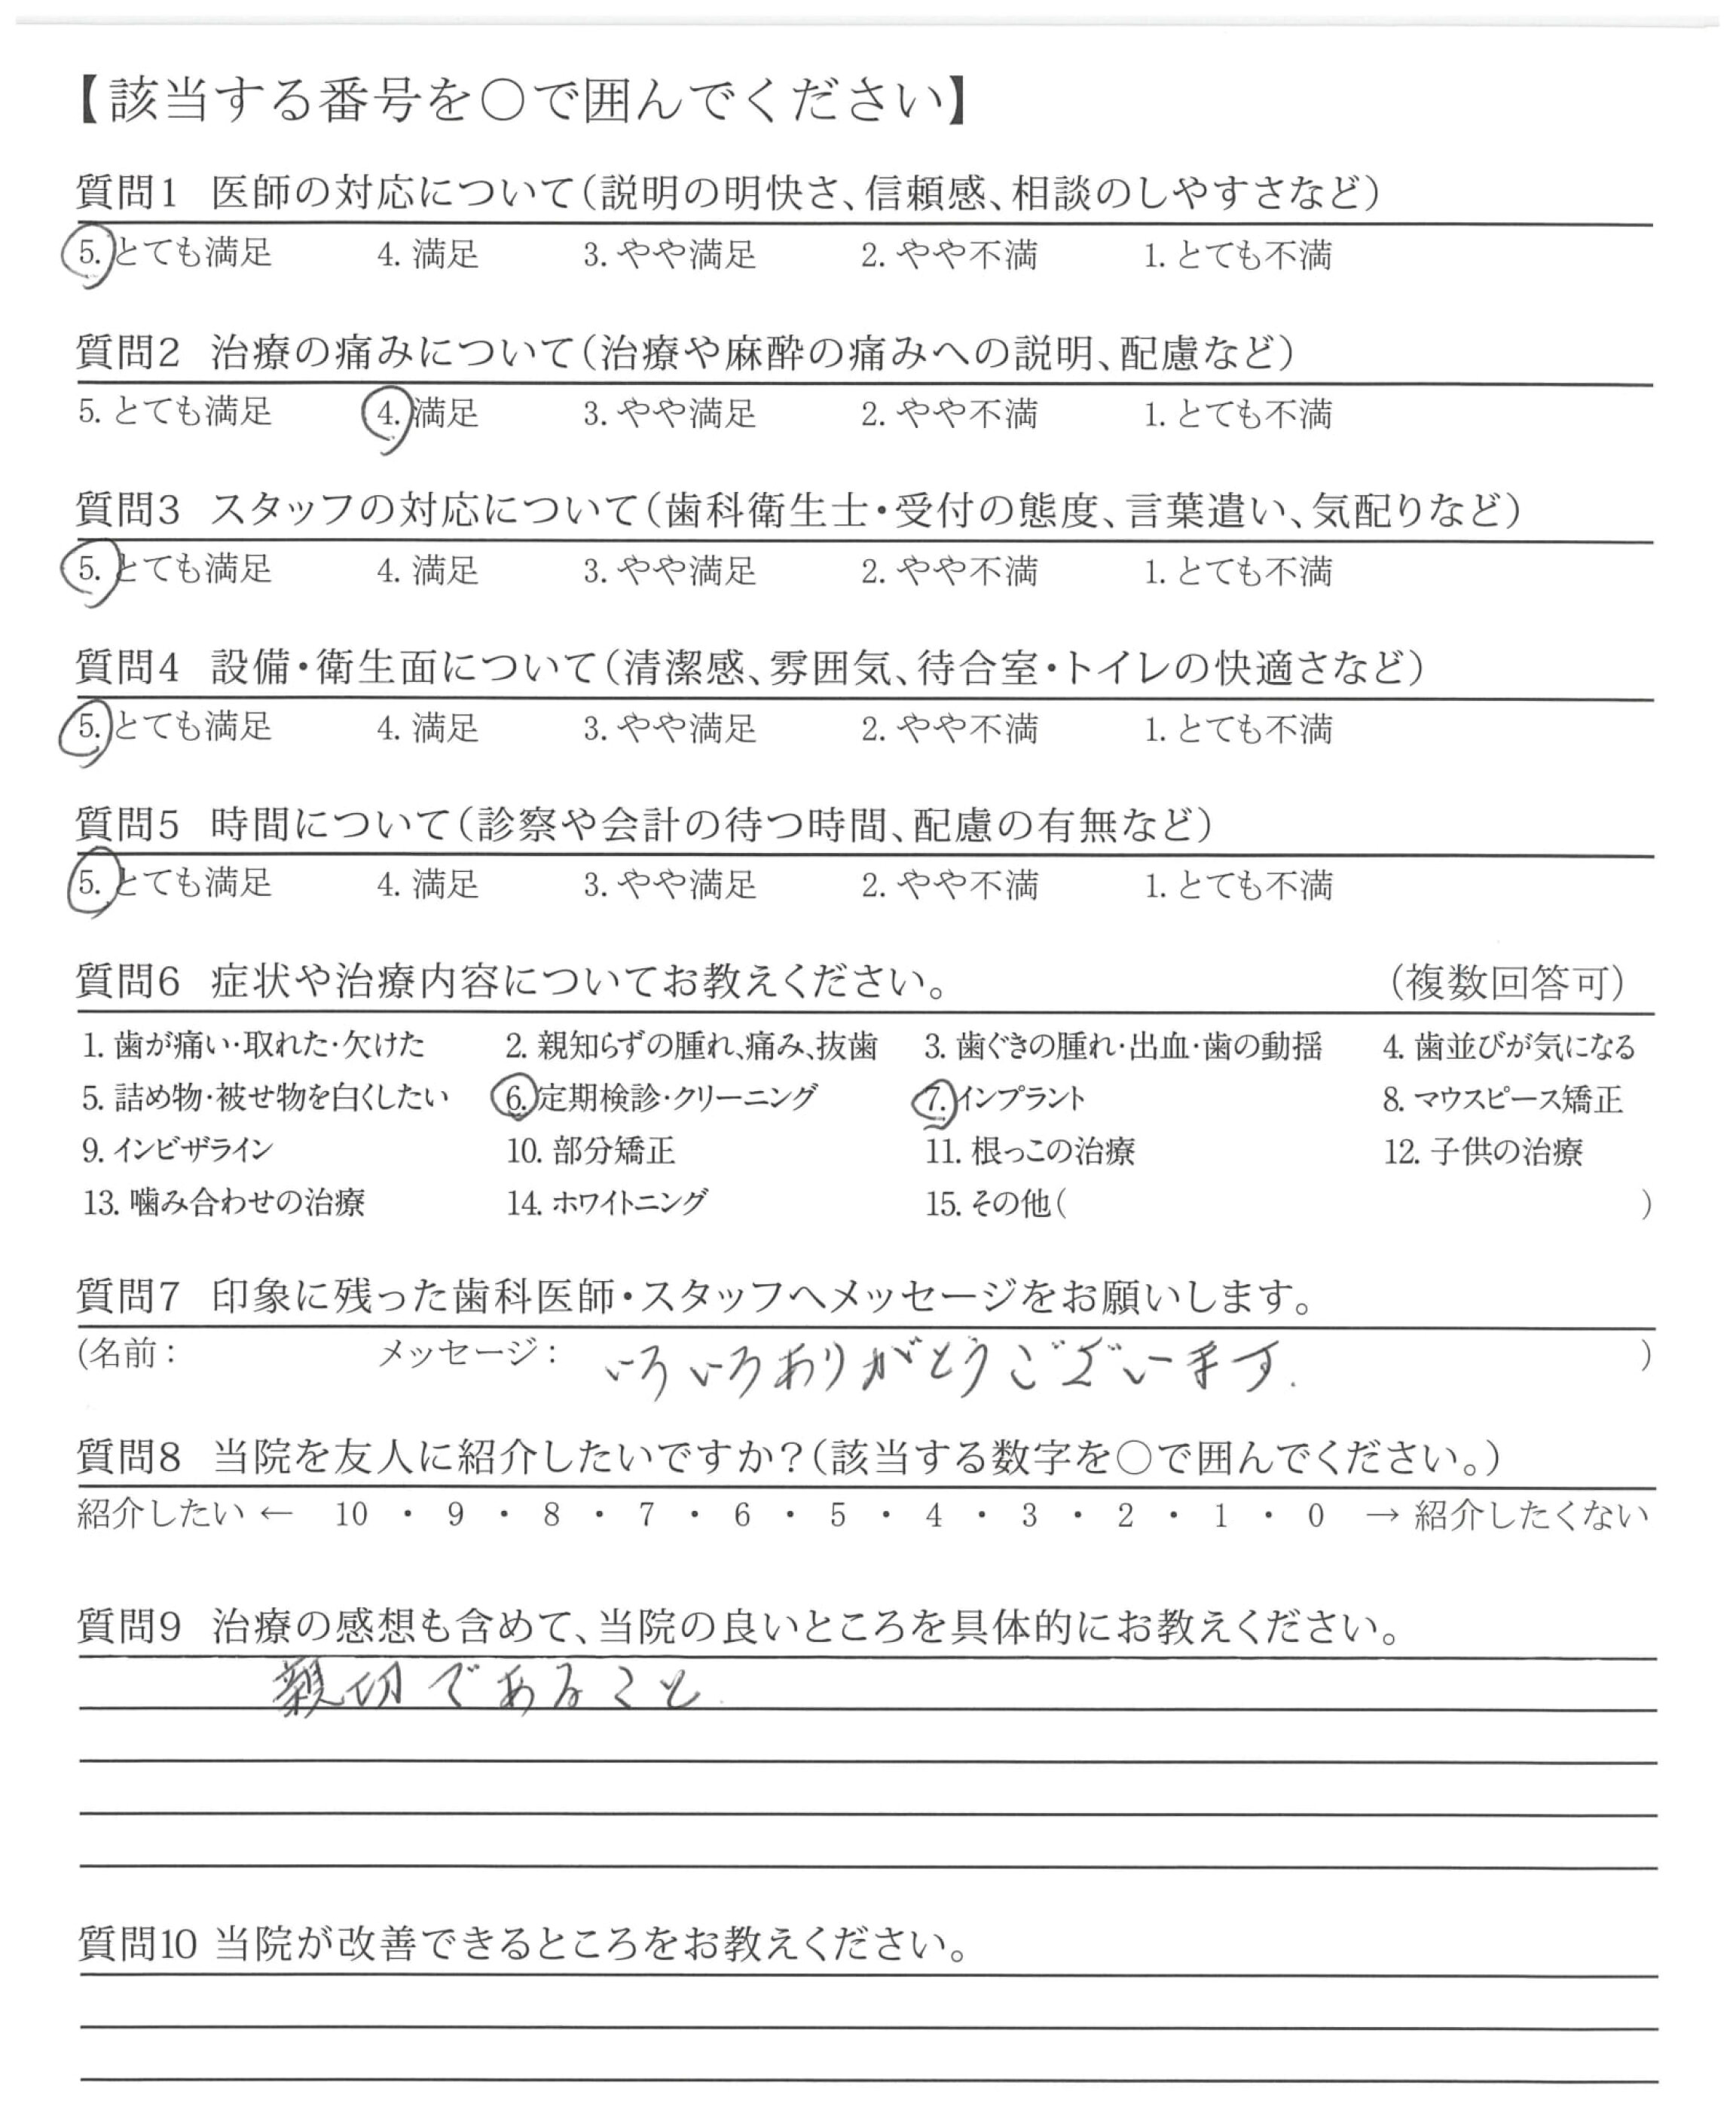 【該当する番号を○で囲んでください】
質問1 医師の対応について(説明の明快さ、信頼感、相談のしやすさなど)
5. とても満足 4. 満足 3. やや満足 2. やや不満 1. とても不満
質問2 治療の痛みについて(治療や麻酔の痛みへの説明、配慮など)
5. とても満足 4. 満足 3. やや満足 2. やや不満 1. とても不満
質問3 スタッフの対応について(歯科衛生士・受付の態度、言葉遣い、気配りなど)
5. とても満足 4. 満足 3. やや満足 2. やや不満 1. とても不満
質問4 設備・衛生面について(清潔感、雰囲気、待合室・トイレの快適さなど)
5. とても満足 4. 満足 3. やや満足 2. やや不満 1. とても不満
質問5 時間について(診察や会計の待つ時間、配慮の有無など)
5. とても満足 4. 満足 3. やや満足 2. やや不満 1. とても不満
質問6 症状や治療内容についてお教えください。 (複数回答可)
1. 歯が痛い・取れた・欠けた 2. 親知らずの腫れ、痛み、抜歯 3. 歯ぐきの腫れ・出血・歯の動揺 4. 歯並びが気になる
5. 詰め物・被せ物を白くしたい 6. 定期検診・クリーニング 7. インプラント 8. マウスピース矯正
9. インビザライン 10. 部分矯正 11. 根っこの治療 12. 子供の治療
13. 噛み合わせの治療 14. ホワイトニング 15. その他( )
質問7 印象に残った歯科医師・スタッフへメッセージをお願いします。
(名前: メッセージ: いろいろありがとうございます. )
質問8 当院を友人に紹介したいですか?(該当する数字を○で囲んでください。)
紹介したい ← 10 ・ 9 ・ 8 ・ 7 ・ 6 ・ 5 ・ 4 ・ 3 ・ 2 ・ 1 ・ 0 → 紹介したくない
質問9 治療の感想も含めて、当院の良いところを具体的にお教えください。
親切であること
質問10 当院が改善できるところをお教えください。